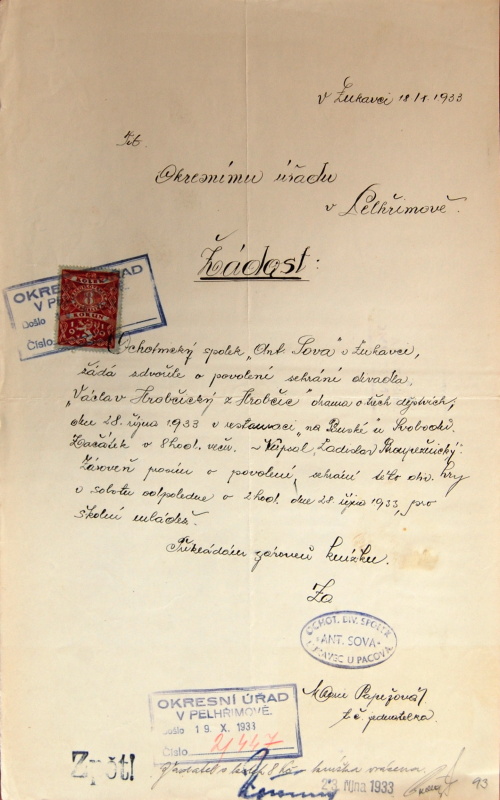 v Lukavci 18/X. 1933
Tit.
Okresnímu úřadu
v Pelhřimově.
Žádost:
OKRESNÍ ÚŘAD
V PEL
Došlo
Číslo
KOLEK
KORUN
Ochotnický spolek „Ant. Sova" v Lukavci,
žádá zdvořile o povolení sehrání divadla,
„Václav Hrobčický z Hrobčic" drama o třech dějstvích,
dne 28. října 1933 v restauraci „na Panské" u Svobodů.
Začátek o 8 hod. več. – Napsal Ladislav Stroupežnický.
Zároveň prosím o povolení, sehrání této div. hry
v sobotu odpoledne o 2 hod. dne 28. října 1933, pro
školní mládež.
Přikládám zároveň knížku.
Za
OCHOT. DIV. SPOLEK
„ANT. SOVA"
LUKAVEC U PACOVA
Papežová
t. č. jednatelka
OKRESNÍ ÚŘAD
V PELHŘIMOVĚ.
Došlo 19. X. 1933
Číslo 21447
Zpět!
kolek 8 Kč knížka vrácena
23. října 1933
93